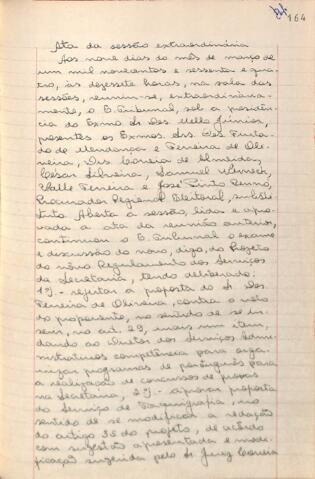 164
Ata da sessão extraordinária
Aos nove dias do mês de março de
um mil novecentos e sessenta e qua-
tro, às dezessete horas, na sala das
sessões, reuniu-se, extraordinaria-
mente, o E. Tribunal, sob a presidên-
cia do Exmo. Sr. Des. Mello Júnior,
presentes os Exmos. Srs. Des. Furta-
do de Mendonça e Ferreira de Oli-
veira, Drs. Correia de Almeida,
César Silveira, Samuel Werneck,
Valle Ferreira e José Pinto Renno,
Procurador Regional Eleitoral, substi-
tuto. Aberta a sessão, lida e apro-
vada a ata da reunião anterior,
continuou o E. Tribunal o exame
e discussão do novo, digo, do Projeto
do novo Regulamento dos Serviços
da Secretaria, tendo deliberado:
1º) - rejeitar a proposta do Sr. Des.
Ferreira de Oliveira, contra o voto
do proponente, no sentido de se in-
serir, no art. 29, mais um item,
dando ao Diretor dos Serviços Admi-
nistrativos competência para orga-
nizar programas de português para
a realização de concursos de provas
na Secretaria, 2º) - aprovar proposta
do Serviço de Taquigrafia, no
sentido de se modificar a redação
do artigo 38 do projeto, de acôrdo
com sugestão apresentada e modi-
ficação sugerida pelo Sr. Juiz Correia